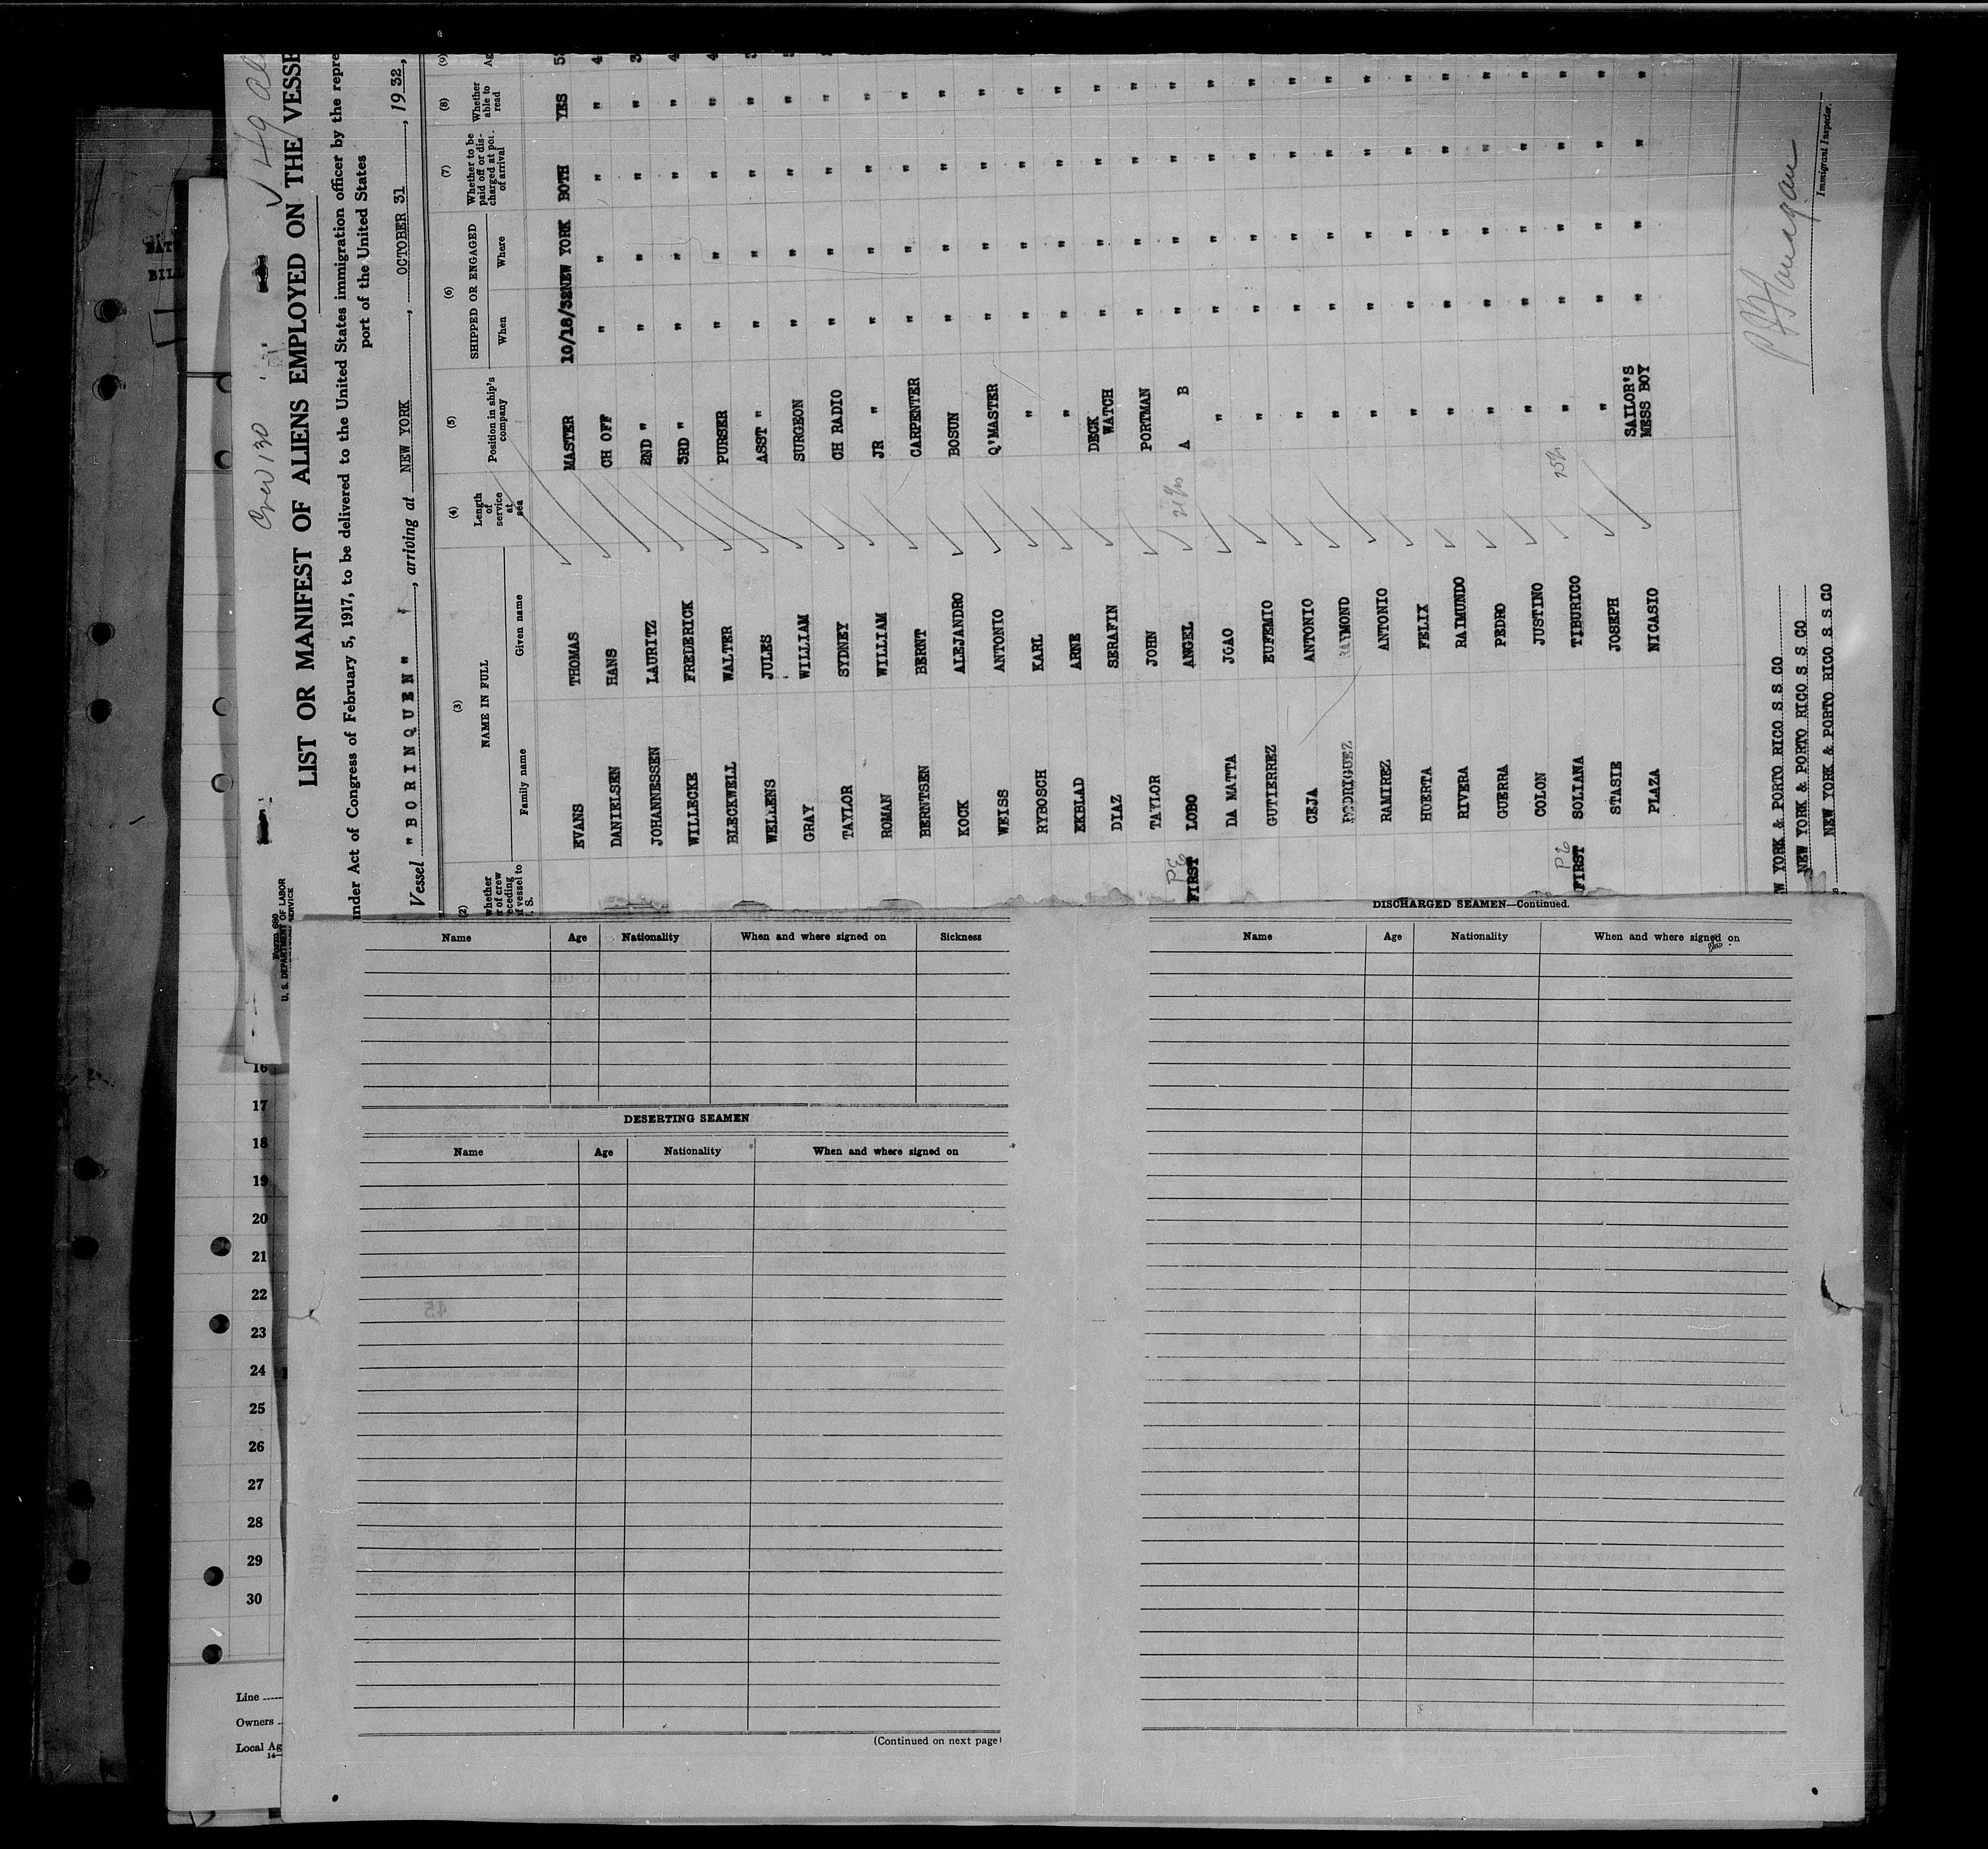 Crew 130
LIST OR MANIFEST OF ALIENS EMPLOYED ON THE VESSE
nder Act of Congress of February 5, 1917, to be delivered to the United States immigration officer by the repre
port of the United States
Vessel "BORINQUEN", arriving at NEW YORK, OCTOBER 31, 1932,
Form 680
U. S. DEPARTMENT OF LABOR
SERVICE
(2) (3) (4) (5) (6) (7) (8) (9)
NAME IN FULL Length of service at sea Position in ship's company SHIPPED OR ENGAGED Whether to be paid off or discharged at port of arrival Whether able to read
Family name Given name When Where
EVANS THOMAS MASTER 10/18/32 NEW YORK BOTH YES
DANIELSEN HANS CH OFF " " " "
JOHANNESSEN LAURITZ 2ND " " " " "
WILLECKE FREDERICK 3RD " " " " "
BLECKWELL WALTER PURSER " " " "
WELLENS JULES ASST " " " " "
GRAY WILLIAM SURGEON " " " "
TAYLOR SYDNEY CH RADIO " " " "
ROMAN WILLIAM JR " " " " "
BERNTSEN BERNT CARPENTER " " " "
KOCK ALEJANDRO BOSUN " " " "
WEISS ANTONIO Q'MASTER " " " "
RYBOSCH KARL " " " " "
EKBLAD ARNE " " " " "
DIAZ SERAFIN DECK WATCH " " " "
TAYLOR JOHN PORTMAN " " " "
FIRST LOBO ANGEL A B " " " "
DA MATTA JOAO " " " " "
GUTIERREZ EUFEMIO " " " " "
CEJA ANTONIO " " " " "
RODRIGUEZ RAYMOND " " " " "
RAMIREZ ANTONIO " " " " "
HUERTA FELIX " " " " "
RIVERA RAIMUNDO " " " " "
GUERRA PEDRO " " " " "
COLON JUSTINO " " " " "
FIRST SOLIANA TIBURICO " " " " "
STASIE JOSEPH " " " " "
PLAZA NICASIO SAILOR'S MESS BOY " " " "
Immigrant Inspector.
W YORK & PORTO RICO S S CO
NEW YORK & PORTO RICO S S CO
NEW YORK & PORTO RICO S S CO
Name Age Nationality When and where signed on Sickness
DESERTING SEAMEN
Name Age Nationality When and where signed on
(Continued on next page)
DISCHARGED SEAMEN—Continued.
Name Age Nationality When and where signed on
16
17
18
19
20
21
22
23
24
25
26
27
28
29
30
Line
Owners
Local Ag
14—